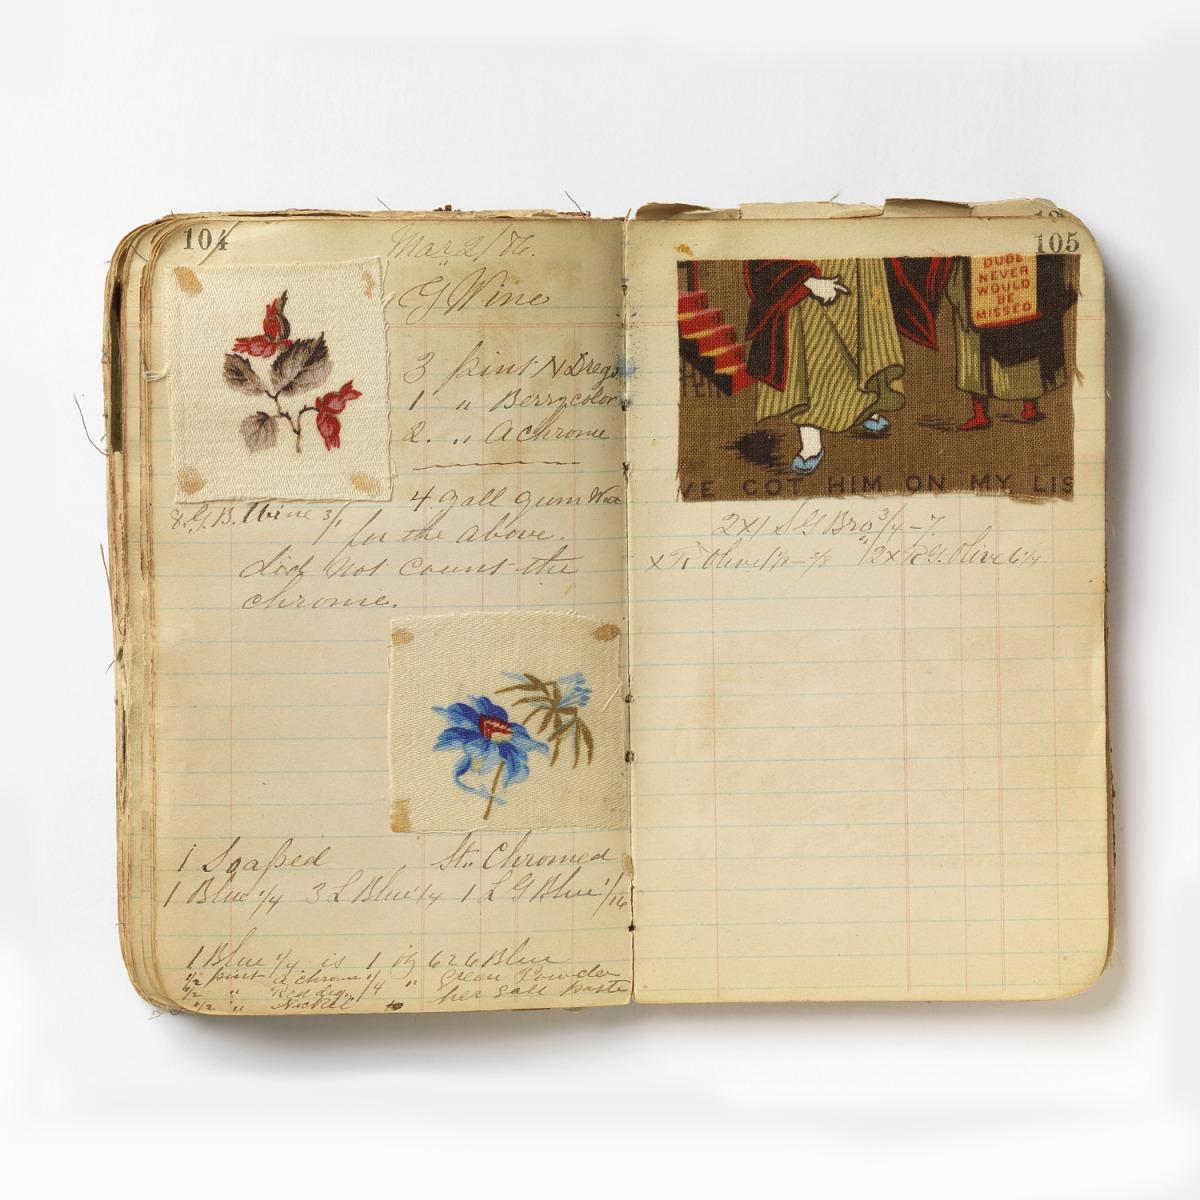 104
Mar 2/86.
G Wine
3 pint N Dregs
1 " Berrycolor
2. " A chrome
4 gall gum
8. G.B. Wine 3/1
for the above.
did not count the
chrome.
1 Soaped St. Chromed
1 Blue 1/4 3 L Blue 1/4 1 L G Blue 1/16
1 Blue 1/4 is 1 oz 626 Blue
1/2 pint a chrome 1/4 " Green Powder
1/2 " per gall paste
1/2 " Nickel
105
DUDE
NEVER
WOULD
BE
MISSED
VE GOT HIM ON MY LIS
2x1 S G Bro 3/4-7
x Olive 1/8-5/8 2x R G. Olive 6 1/4